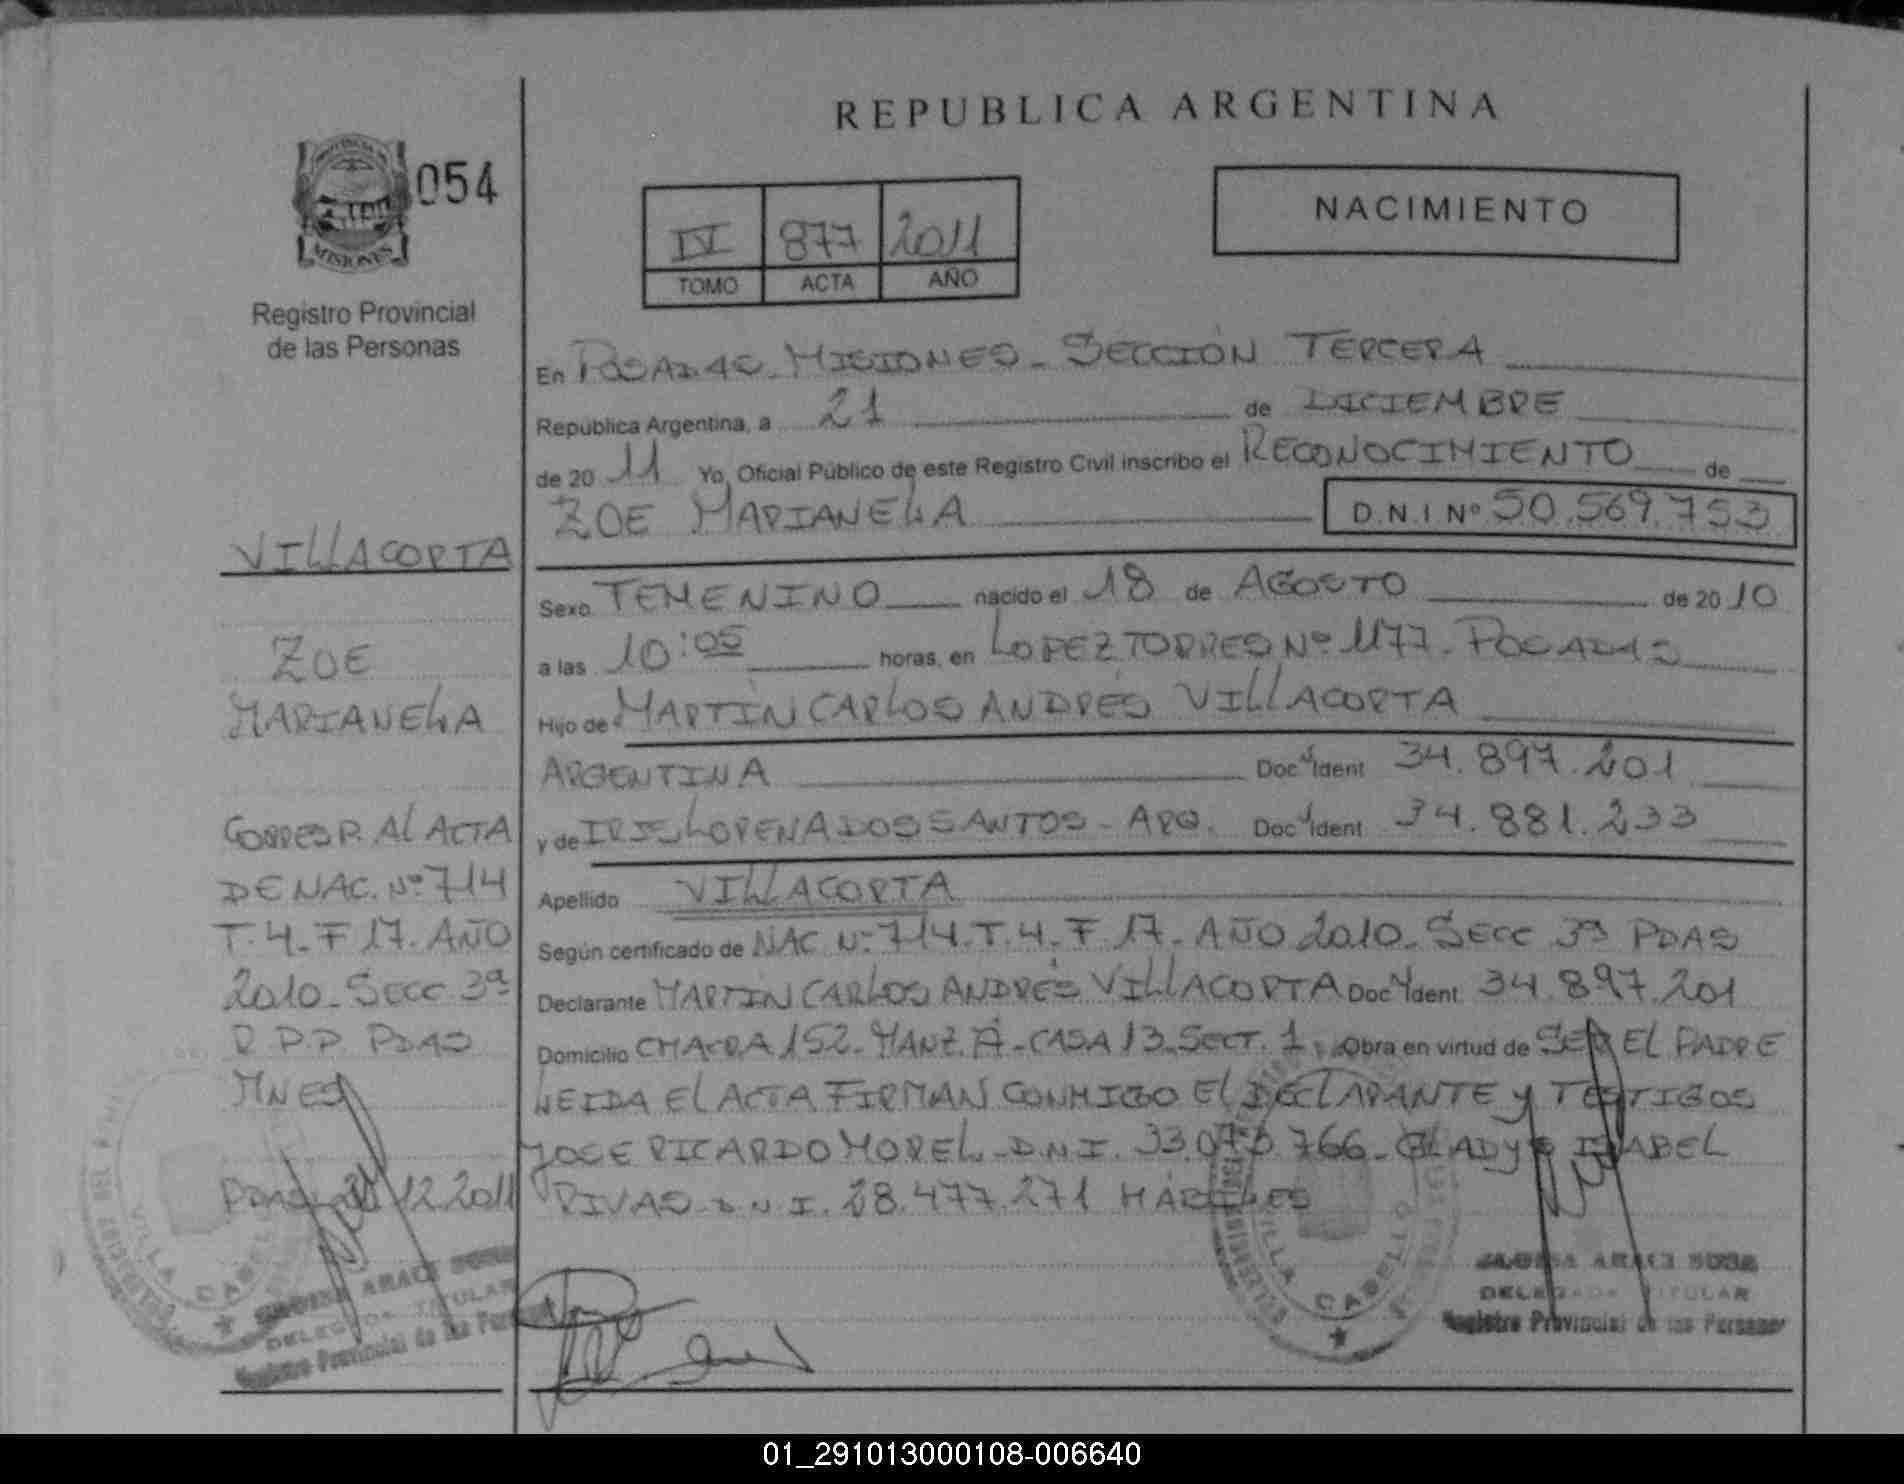 REPUBLICA ARGENTINA
PROVINCIA DE
MISIONES
054
Registro Provincial
de las Personas
IV 877 2011
TOMO ACTA AÑO
NACIMIENTO
En POSADAS MISIONES - SECCIÓN TERCERA
República Argentina, a 21 de DICIEMBRE
de 20 11 Yo, Oficial Público de este Registro Civil inscribo el RECONOCIMIENTO de
ZOE MARIANELA D.N.I Nº 50.569.753
Sexo FEMENINO nacido el 18 de AGOSTO de 20 10
a las 10:05 horas, en LOPEZ TORRES Nº 1177 - POSADAS
Hijo de MARTÍN CARLOS ANDRÉS VILLACORTA
ARGENTINA Doc Ident 34.897.201
y de IRIS LORENA DOS SANTOS - ARG. Doc Ident 34.881.233
Apellido VILLACORTA
Según certificado de NAC. Nº 714. T. 4. F. 17. AÑO 2010. SECC 3ª PDAS
Declarante MARTÍN CARLOS ANDRÉS VILLACORTA Doc Ident 34.897.201
Domicilio CHACRA 152. MANZ. A - CASA 13. SECT. 1 Obra en virtud de SER EL PADRE
LEIDA EL ACTA FIRMAN CONMIGO EL DECLARANTE Y TESTIGOS
JOSE RICARDO MOREL - D.N.I. 33.073.766 - GLADYS ISABEL
RIVAS D.N.I. 28.477.271 HÁBILES
VILLACORTA
ZOE
MARIANELA
CORRESP. AL ACTA
DE NAC. Nº 714
T. 4. F 17. AÑO
2010 - SECC 3ª
R.P.P. PDAS
MNES
PDAS 21 12 2011
VILLA CABELLO
ARACI SOSA
DELEGADA TITULAR
Registro Provincial de las Personas
VILLA CABELLO
ARACI SOSA
DELEGADA TITULAR
Registro Provincial de las Personas
01_291013000108-006640